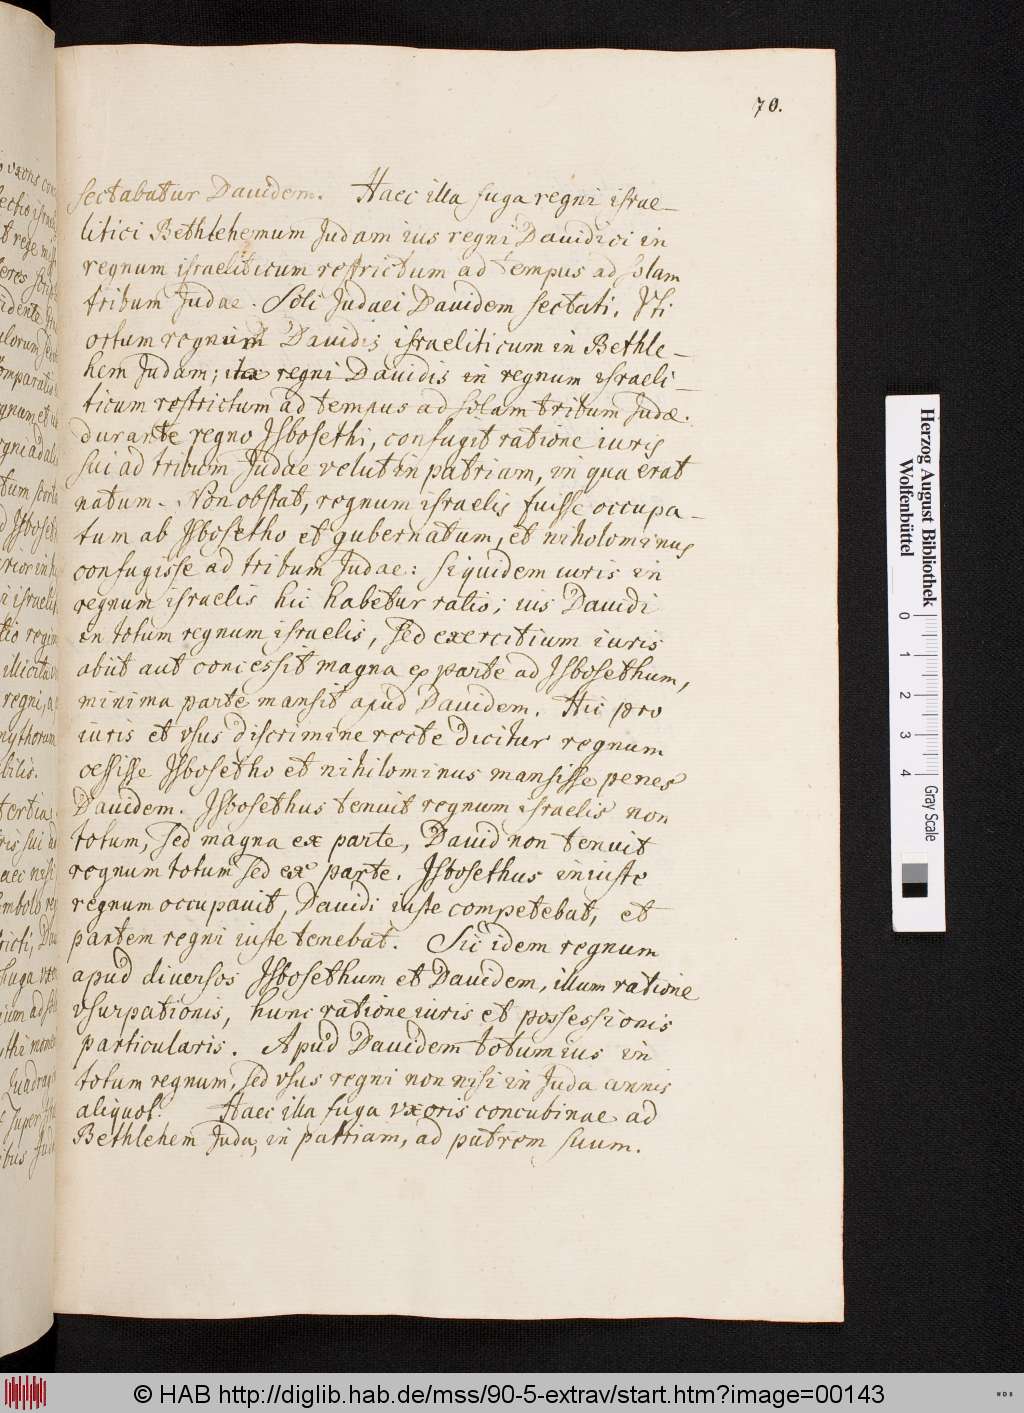 70.
sectabatur Dauidem. Haec illa fuga regni israe-
litici Bethlehemum Judam ius regni Dauidici in
regnum israeliticum restrictum ad tempus ad solam
tribum Judae. Soli Judaei Dauidem sectati. Vti
ortum regnum Dauidis israeliticum in Bethle-
hem Judam; ita regni Dauidis in regnum israeli-
ticum restrictum ad tempus ad solam tribum Judae.
durante regno Isbosethi, confugit ratione iuris
sui ad tribum Judae velut in patriam, in qua erat
natum. Non obstat, regnum israelis fuisse occupa-
tum ab Isbosetho et gubernatum, et niholominus
confugisse ad tribum Judae: siquidem iuris in
regnum israelis hic habetur ratio; ius Dauidi
in totum regnum israelis, sed exercitium iuris
abiit aut concessit magna ex parte ad Isbosethum,
minima parte mansit apud Dauidem. Hic pro
iuris et vsus discrimine recte dicitur regnum
cessisse Isbosetho et nihilominus mansisse penes
Dauidem. Isbosethus tenuit regnum israelis non
totum, sed magna ex parte, Dauid non tenuit
regnum totum sed ex parte. Isbosethus iniuste
regnum occupauit, Dauidi iuste competebat, et
partem regni iuste tenebat. Sic idem regnum
apud diuersos Isbosethum et Dauidem, illum ratione
vsurpationis, hunc ratione iuris et possessionis
particularis. Apud Dauidem totum ius in
totum regnum, sed vsus regni non nisi in Juda annis
aliquot. Haec illa fuga vxoris concubinae ad
Bethlehem Juda, in patriam, ad patrem suum.
Herzog August Bibliothek
Wolfenbüttel
0 1 2 3 4
Gray Scale
© HAB http://diglib.hab.de/mss/90-5-extrav/start.htm?image=00143